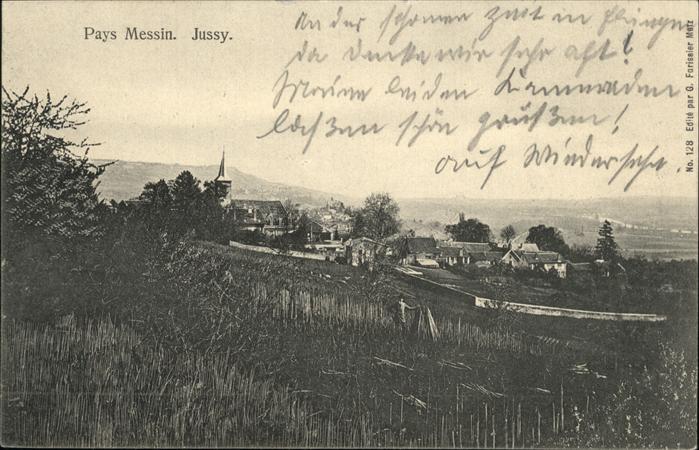 Pays Messin. Jussy.
An der schönen Zeit in Pfingen
da denken wir sehr oft!
Meine beiden Kammeraden
laßzen schön grüßzen!
auf Wiedersehn.
No. 128 Edité par G. Farissier Metz